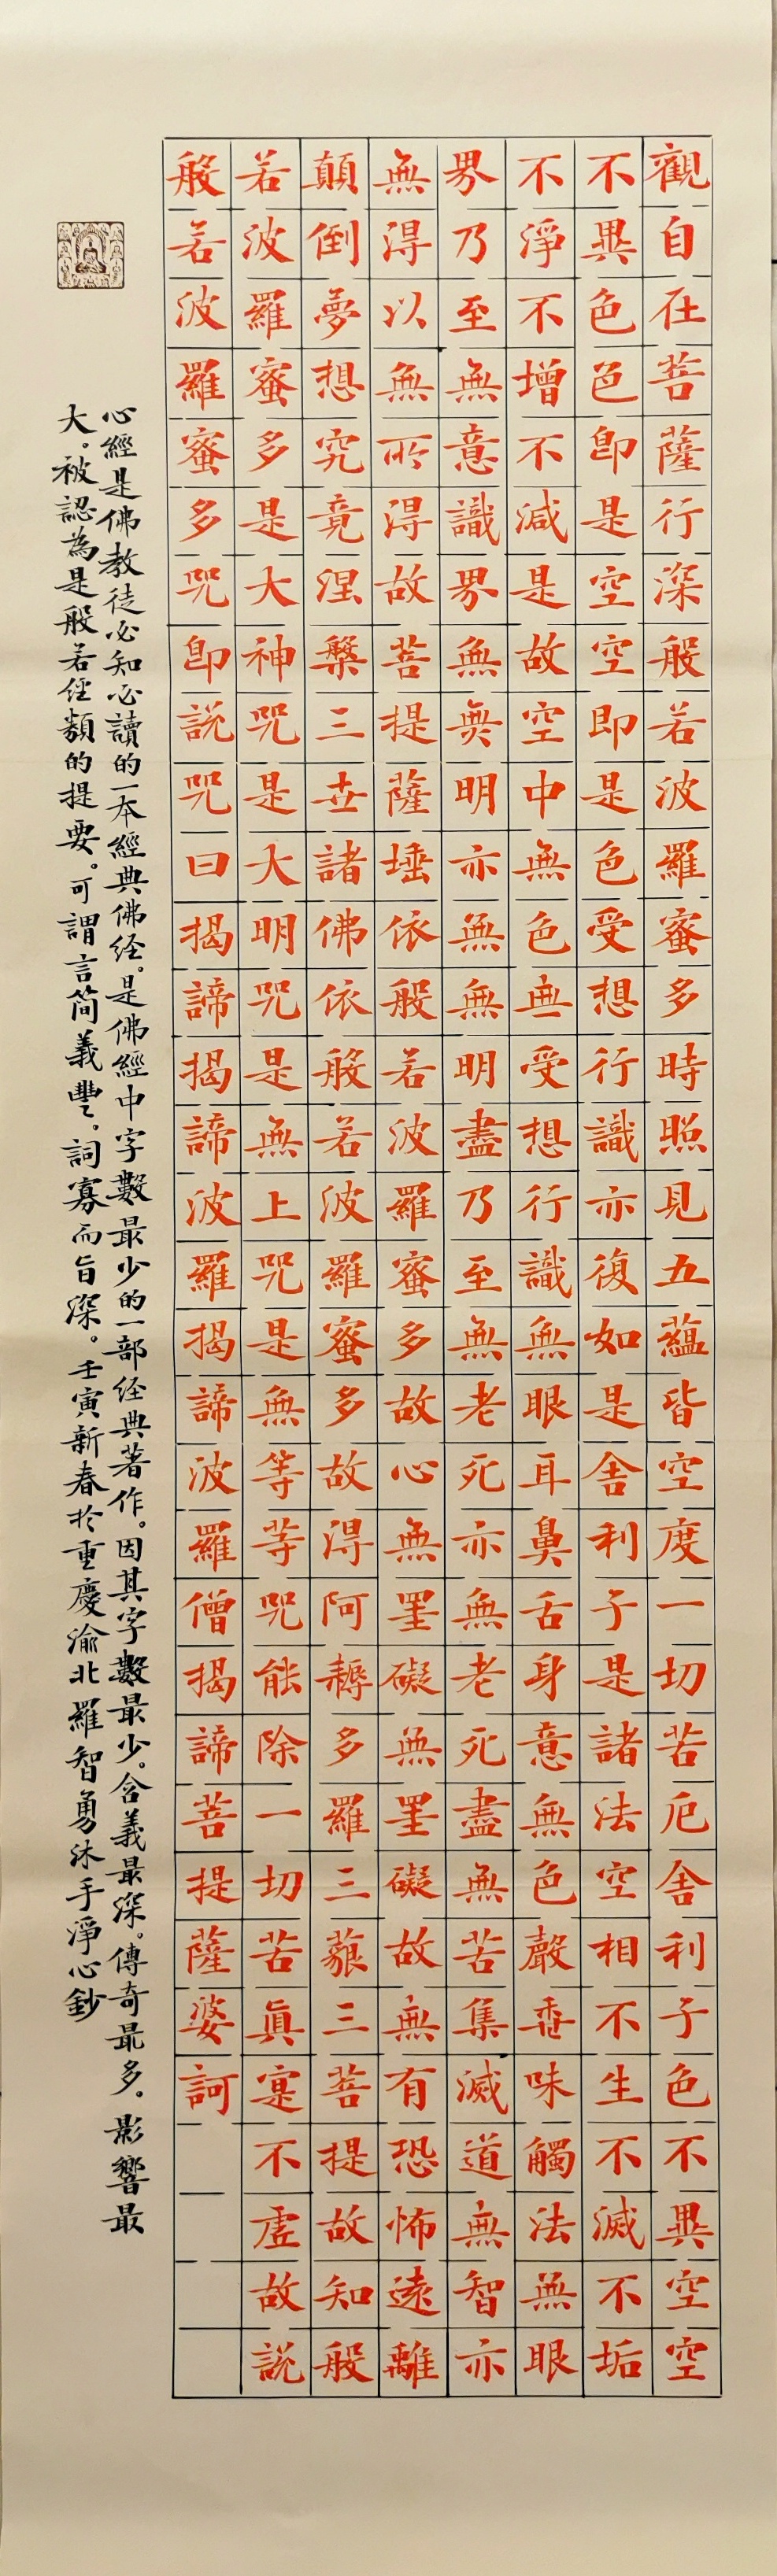 觀自在菩薩行深般若波羅蜜多時照見五蘊皆空度一切苦厄舍利子色不異空空
不異色色即是空空即是色受想行識亦復如是舍利子是諸法空相不生不滅不垢
不淨不增不減是故空中無色無受想行識無眼耳鼻舌身意無色聲香味觸法無眼
界乃至無意識界無無明亦無無明盡乃至無老死亦無老死盡無苦集滅道無智亦
無得以無所得故菩提薩埵依般若波羅蜜多故心無罣礙無罣礙故無有恐怖遠離
顛倒夢想究竟涅槃三世諸佛依般若波羅蜜多故得阿耨多羅三藐三菩提故知般
若波羅蜜多是大神咒是大明咒是無上咒是無等等咒能除一切苦真寔不虛故說
般若波羅蜜多咒即說咒曰揭諦揭諦波羅揭諦波羅僧揭諦菩提薩婆訶
心經是佛教徒必知必讀的一本經典佛经。是佛經中字數最少的一部经典著作。因其字數最少。含義最深。傳奇最多。影響最
大。被認為是般若经類的提要。可謂言简義豐。詞寡而旨深。壬寅新春於重慶渝北羅智勇沐手淨心鈔